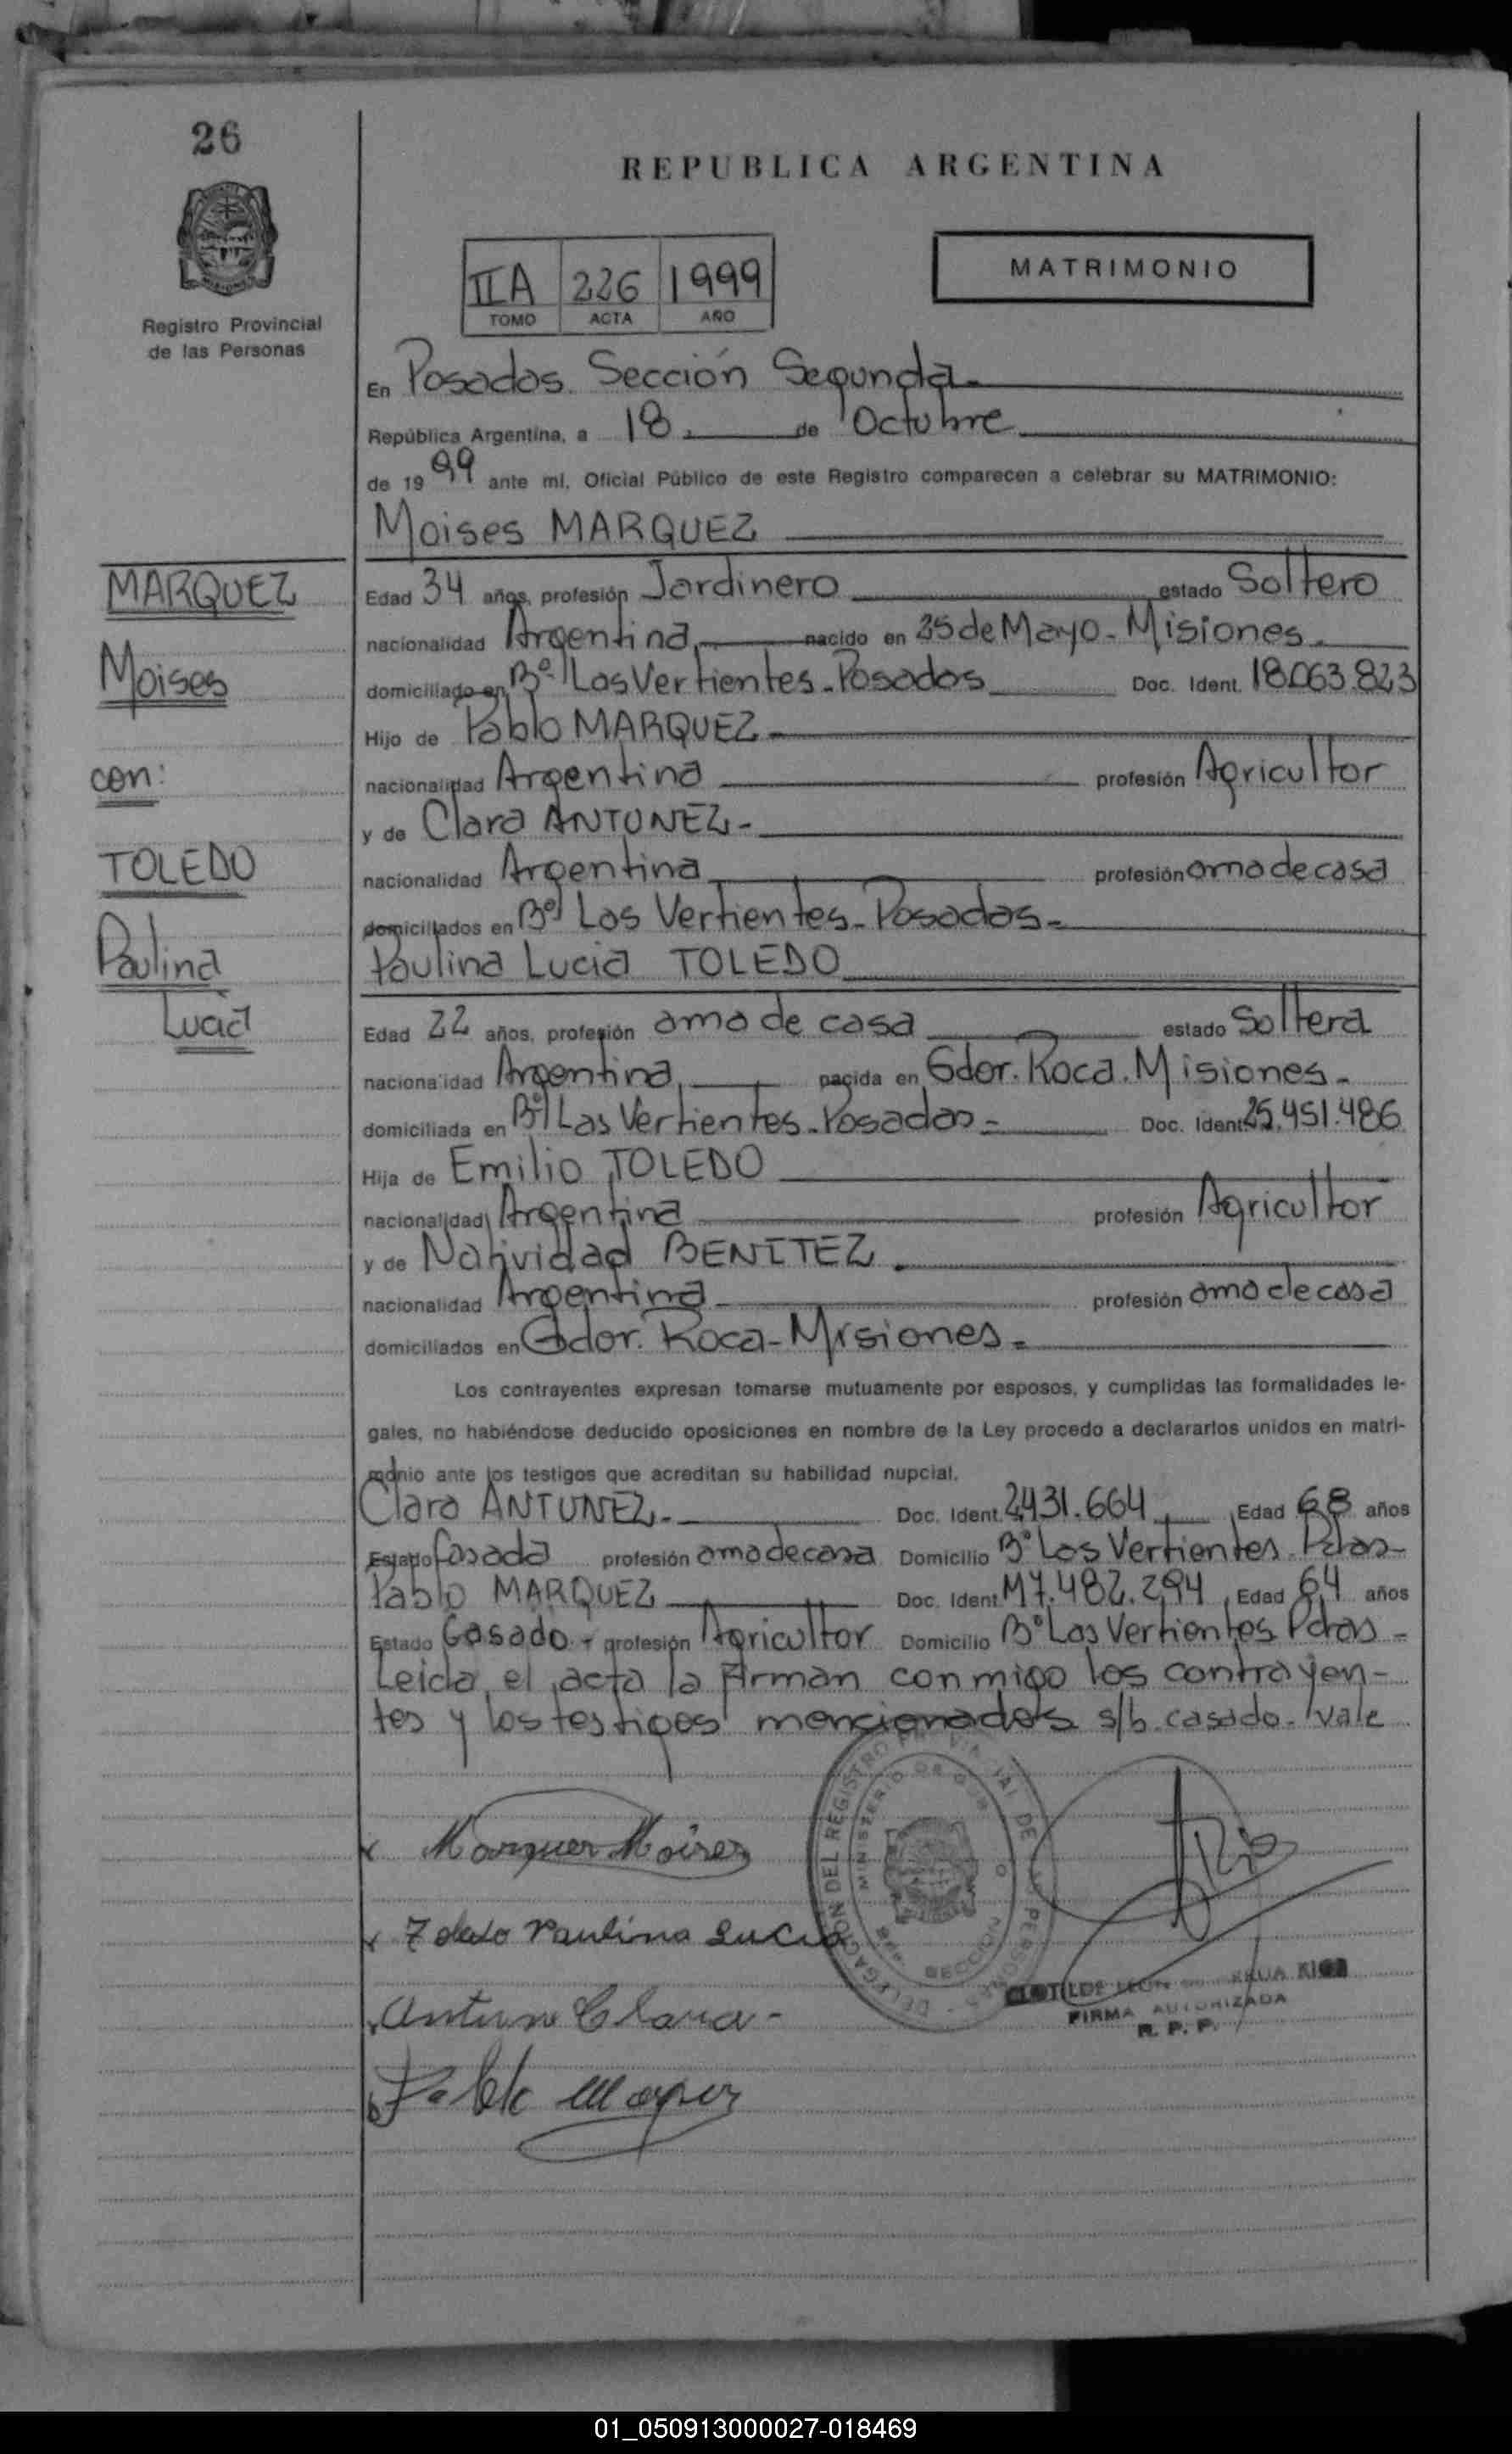 26
REPUBLICA ARGENTINA
IIA 226 1999
TOMO ACTA AÑO
MATRIMONIO
Registro Provincial
de las Personas
En Posadas. Sección Segunda.
República Argentina, a 18. de Octubre
de 1999 ante mí, Oficial Público de este Registro comparecen a celebrar su MATRIMONIO:
Moises MARQUEZ
MARQUEZ
Moises
con:
TOLEDO
Paulina
Lucia
Edad 34 años, profesión Jardinero estado Soltero
nacionalidad Argentina, nacido en 25 de Mayo - Misiones.
domiciliado en Bº Las Vertientes - Posadas Doc. Ident. 18.063.823
Hijo de Pablo MARQUEZ -
nacionalidad Argentina profesión Agricultor
y de Clara ANTUNEZ -
nacionalidad Argentina profesión ama de casa
domiciliados en Bº Las Vertientes - Posadas -
Paulina Lucia TOLEDO
Edad 22 años, profesión ama de casa estado Soltera
nacionalidad Argentina, nacida en Gdor. Roca. Misiones -
domiciliada en Bº Las Vertientes - Posadas - Doc. Ident. 25.451.486
Hija de Emilio TOLEDO
nacionalidad Argentina profesión Agricultor
y de Natividad BENITEZ.
nacionalidad Argentina profesión ama de casa
domiciliados en Gdor. Roca - Misiones -
Los contrayentes expresan tomarse mutuamente por esposos, y cumplidas las formalidades le-
gales, no habiéndose deducido oposiciones en nombre de la Ley procedo a declararlos unidos en matri-
monio ante los testigos que acreditan su habilidad nupcial.
Clara ANTUNEZ - Doc. Ident. 2.431.664 Edad 68 años
Estado Casada profesión ama de casa Domicilio Bº Las Vertientes. Pdas -
Pablo MARQUEZ Doc. Ident. M7.482.294, Edad 64 años
Estado Casado - profesión Agricultor Domicilio Bº Las Vertientes Pdas -
Leida el acta la firman conmigo los contrayen-
tes y los testigos mencionados s/b. casado. Vale
x Marquez Moises
x Toledo Paulina Lucia
Antune Clara -
Pablo Marquez
DELEGACION DEL REGISTRO DE PERSONAS
MINISTERIO DE SECCION
CLOTILDE
FIRMA AUTORIZADA
R. P. P.
01_050913000027-018469